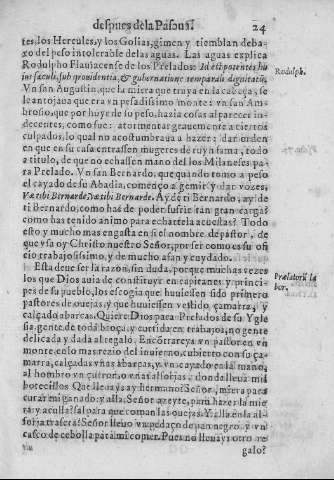 despues dela Pascua.
24
tes, los Hercules, y los Golias, gimen y tiemblan deba-
xo del peso intolerable de las aguas. Las aguas explica
Rodolpho Flauiacense de los Prelados: Id est potentes hu
ius sæculi, sub prouidentia, & gubernatione temporali dignitatis,
Rodulph.
Vn san Augustin, que la mitra que traya en la cabeça, se
le antojaua que era vn pesadissimo monte: vn san Am-
brosio, que por huyr de su peso, hazia cosas al parecer in-
decentes, como fue: atormentar grauemente a ciertos
culpados, lo qual no acostumbraua a hazer; dar orden
en que en su casa entrassen mugeres de ruyn fama, todo
a titulo, de que no echassen mano del los Milaneses pa-
ra Prelado. Vn san Bernardo, que quando tomo a peso
el cayado de su Abadia, començo a gemir y dar vozes,
Væ tibi Bernarde, væ tibi Bernarde. Ay de ti Bernardo, ay de
ti Bernardo; como has de poder sufrir tan gran carga?
como has tenido animo para echartela acuestas? Todo
esto y mucho mas engasta en si el nombre de pastor, de
que vsa oy Christo nuestro Señor, por ser como es su ofi
cio trabajosissimo, y de mucho afan y cuydado.
Esta deue ser la razon, sin duda, porque muchas vezes
los que Dios auia de constituyr en capitanes y princi-
pes de su pueblo, los escogia que huuiessen sido primero
pastores de ouejas, y que huuiessen vestido, çamarra, y
calçado abarcas. Quiere Dios para Prelados de su Ygle
sia gente de toda broça, y curtida en trabajos, no gente
delicada y dada al regalo. Encontrareys vn pastor en vn
monte en lo mas rezio del inuierno, cubierto con su ça-
marra, calçadas vnas abarcas, y vn cayado en la mano,
al hombro vn çurron, o vnas alforjas, donde lleua mil
botecillos Que lleuays ay hermano? Señor, miera para
curar mi ganado: y alla? Señor azeyte, para hazer la mie
ra: y aculla? sal para que coman las ouejas. Y alla en la al-
forja trasera? Señor lleuo vn pedaço de pan negro, y vn
casco de cebolla para mi comer. Pues no lleuays otro re
Prælatorū la
bor.
galo?